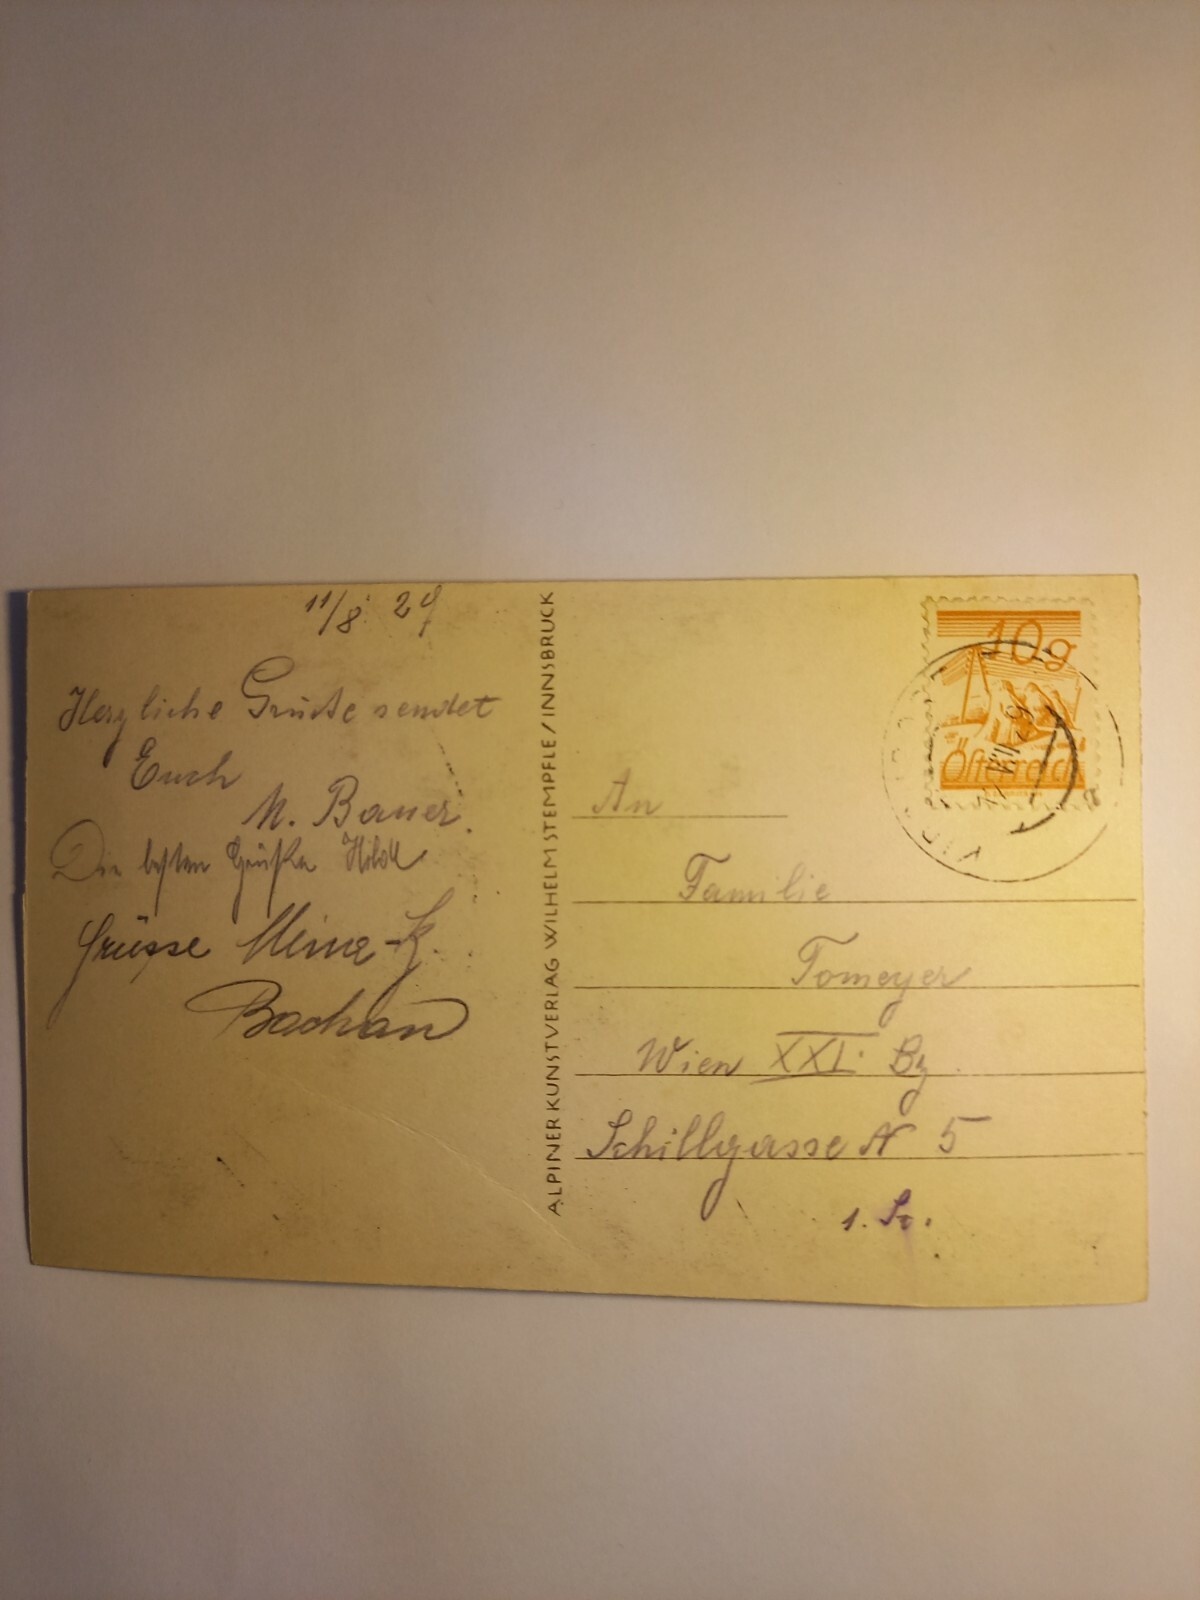 11/8. 29
Herzliche Grüsse sendet
Euch
M. Bauer.
Die besten Grüße Hilde
Grüsse
ALPINER KUNSTVERLAG WILHELM STEMPFLE/INNSBRUCK
10g
Österreich
An
Familie
Tomeyer
Wien XXI. Bz.
Schillgasse N 5
1. St.